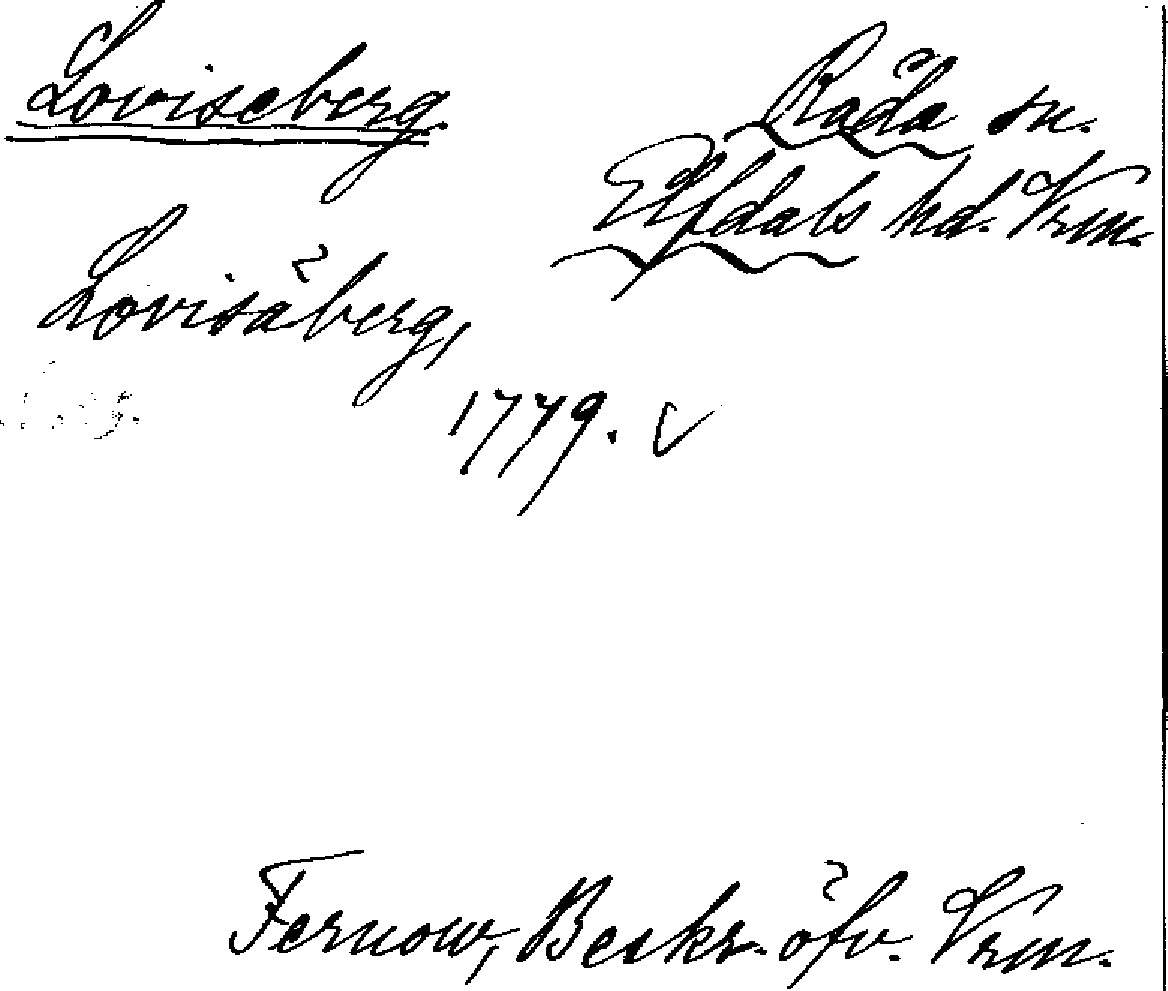 Loviseberg.
Råda sn.
Elfdals hd. Vrm.
Lovisäberg,
1779. V
Fernow, Beskr. öfv. Vrm.